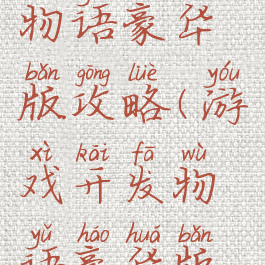 物语豪华
bǎn gōng lüè yóu
版攻略(游
xì kāi fā wù
戏开发物
yǔ háo huá bǎn
语豪华版